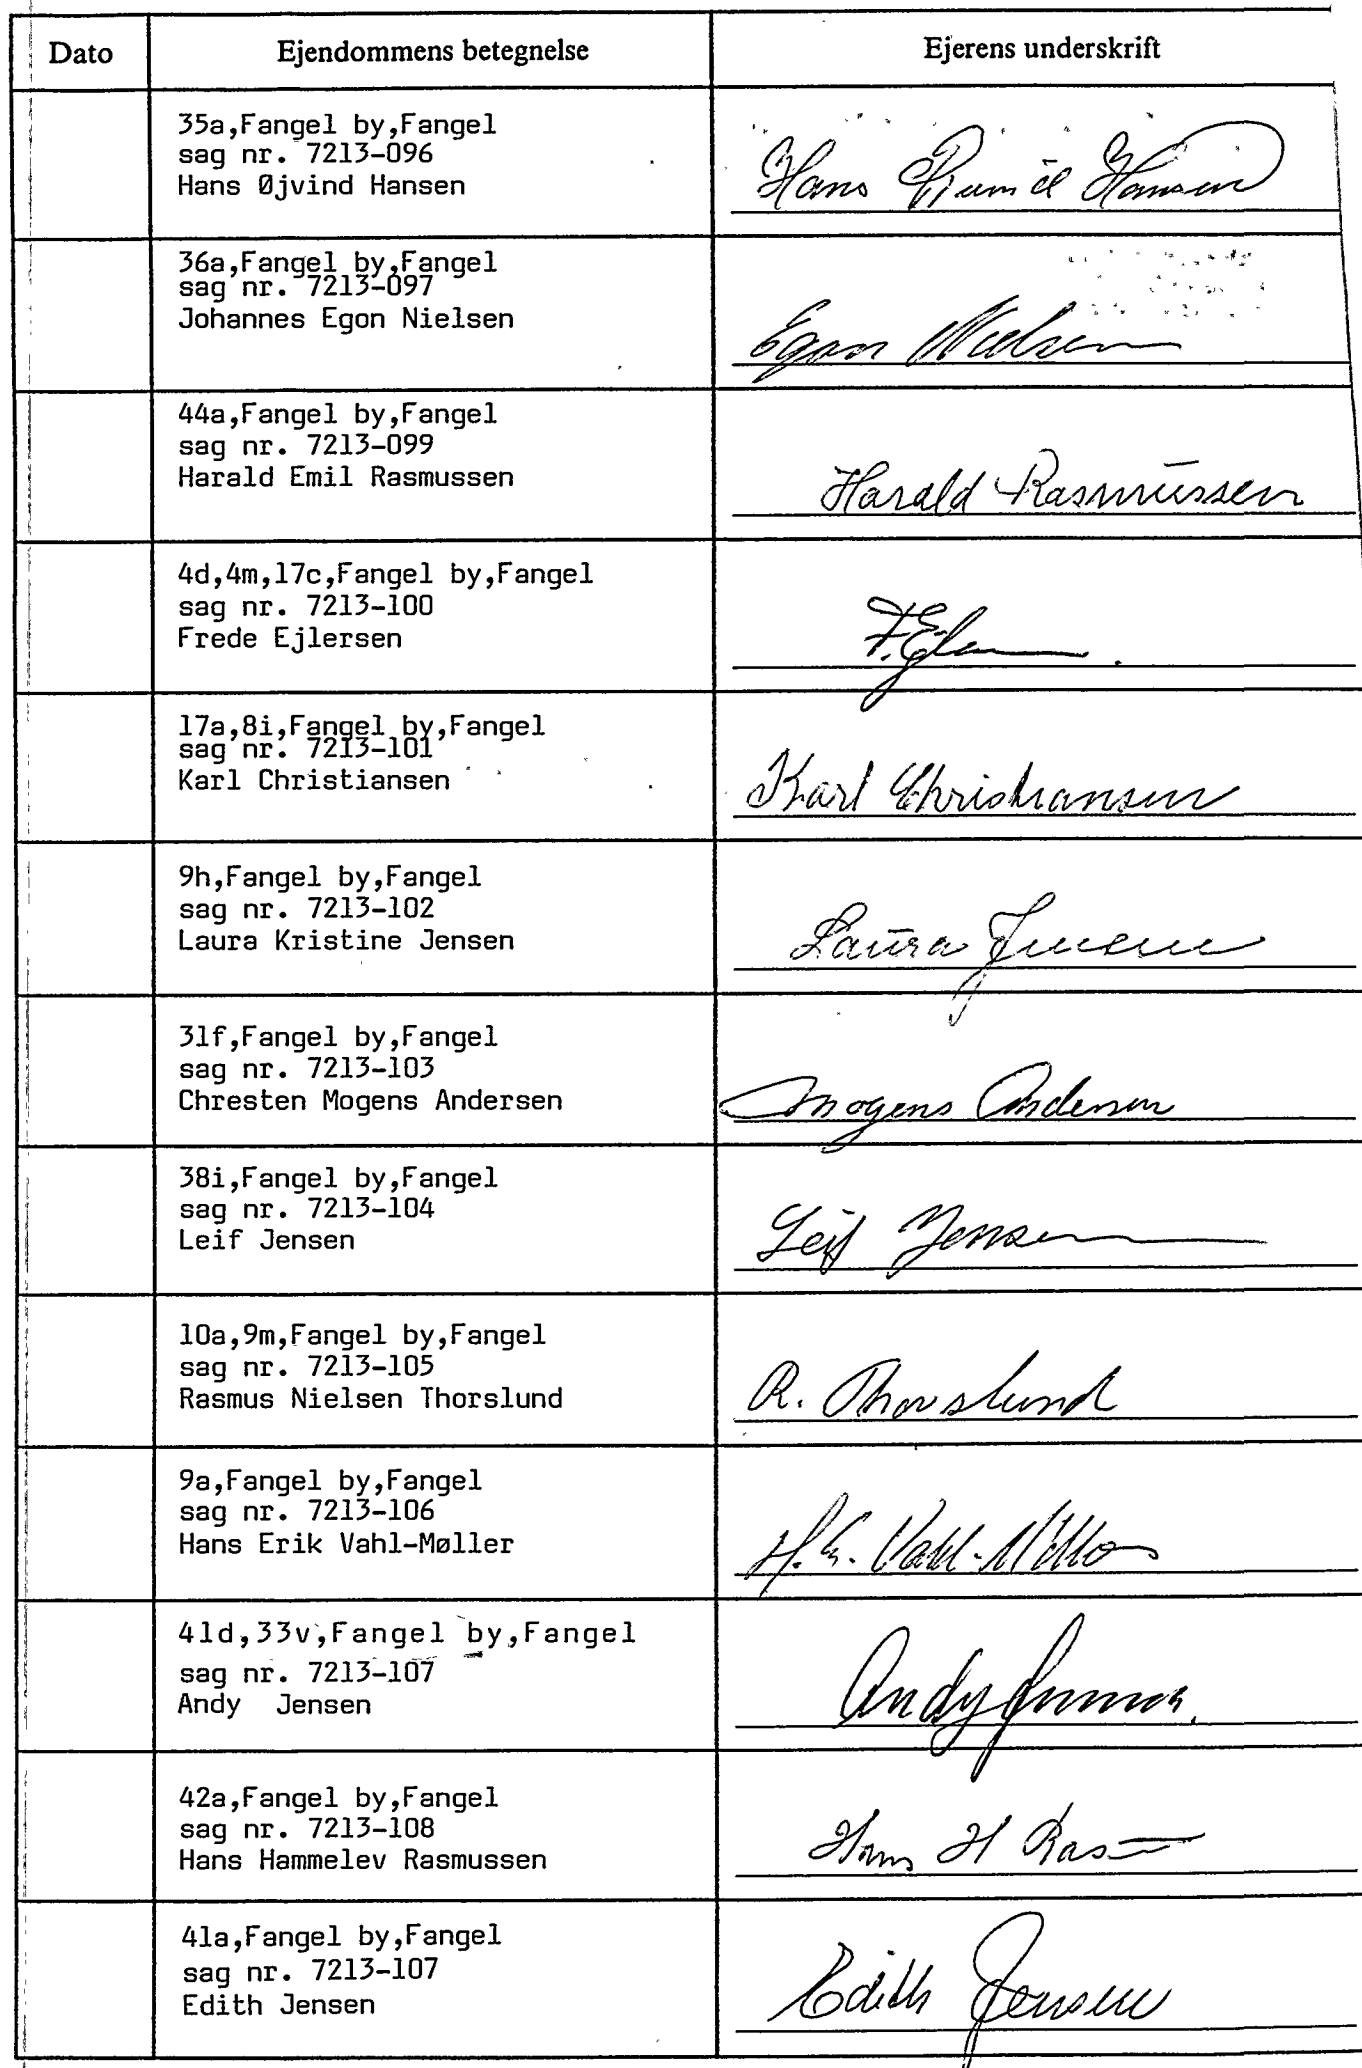 Dato Ejendommens betegnelse Ejerens underskrift
35a,Fangel by,Fangel
sag nr. 7213-096
Hans Øjvind Hansen
Hans Hansen
36a,Fangel by,Fangel
sag nr. 7213-097
Johannes Egon Nielsen
Egon Nielsen
44a,Fangel by,Fangel
sag nr. 7213-099
Harald Emil Rasmussen
Harald Rasmussen
4d,4m,17c,Fangel by,Fangel
sag nr. 7213-100
Frede Ejlersen
17a,8i,Fangel by,Fangel
sag nr. 7213-101
Karl Christiansen
Karl Christiansen
9h,Fangel by,Fangel
sag nr. 7213-102
Laura Kristine Jensen
Laura Jensen
31f,Fangel by,Fangel
sag nr. 7213-103
Chresten Mogens Andersen
Mogens Andersen
38i,Fangel by,Fangel
sag nr. 7213-104
Leif Jensen
Leif Jensen
10a,9m,Fangel by,Fangel
sag nr. 7213-105
Rasmus Nielsen Thorslund
R. Thorslund
9a,Fangel by,Fangel
sag nr. 7213-106
Hans Erik Vahl-Møller
H.E. Vahl-Møller
41d,33v,Fangel by,Fangel
sag nr. 7213-107
Andy Jensen
Andy Jensen
42a,Fangel by,Fangel
sag nr. 7213-108
Hans Hammelev Rasmussen
Hans H Ras
41a,Fangel by,Fangel
sag nr. 7213-107
Edith Jensen
Edith Jensen